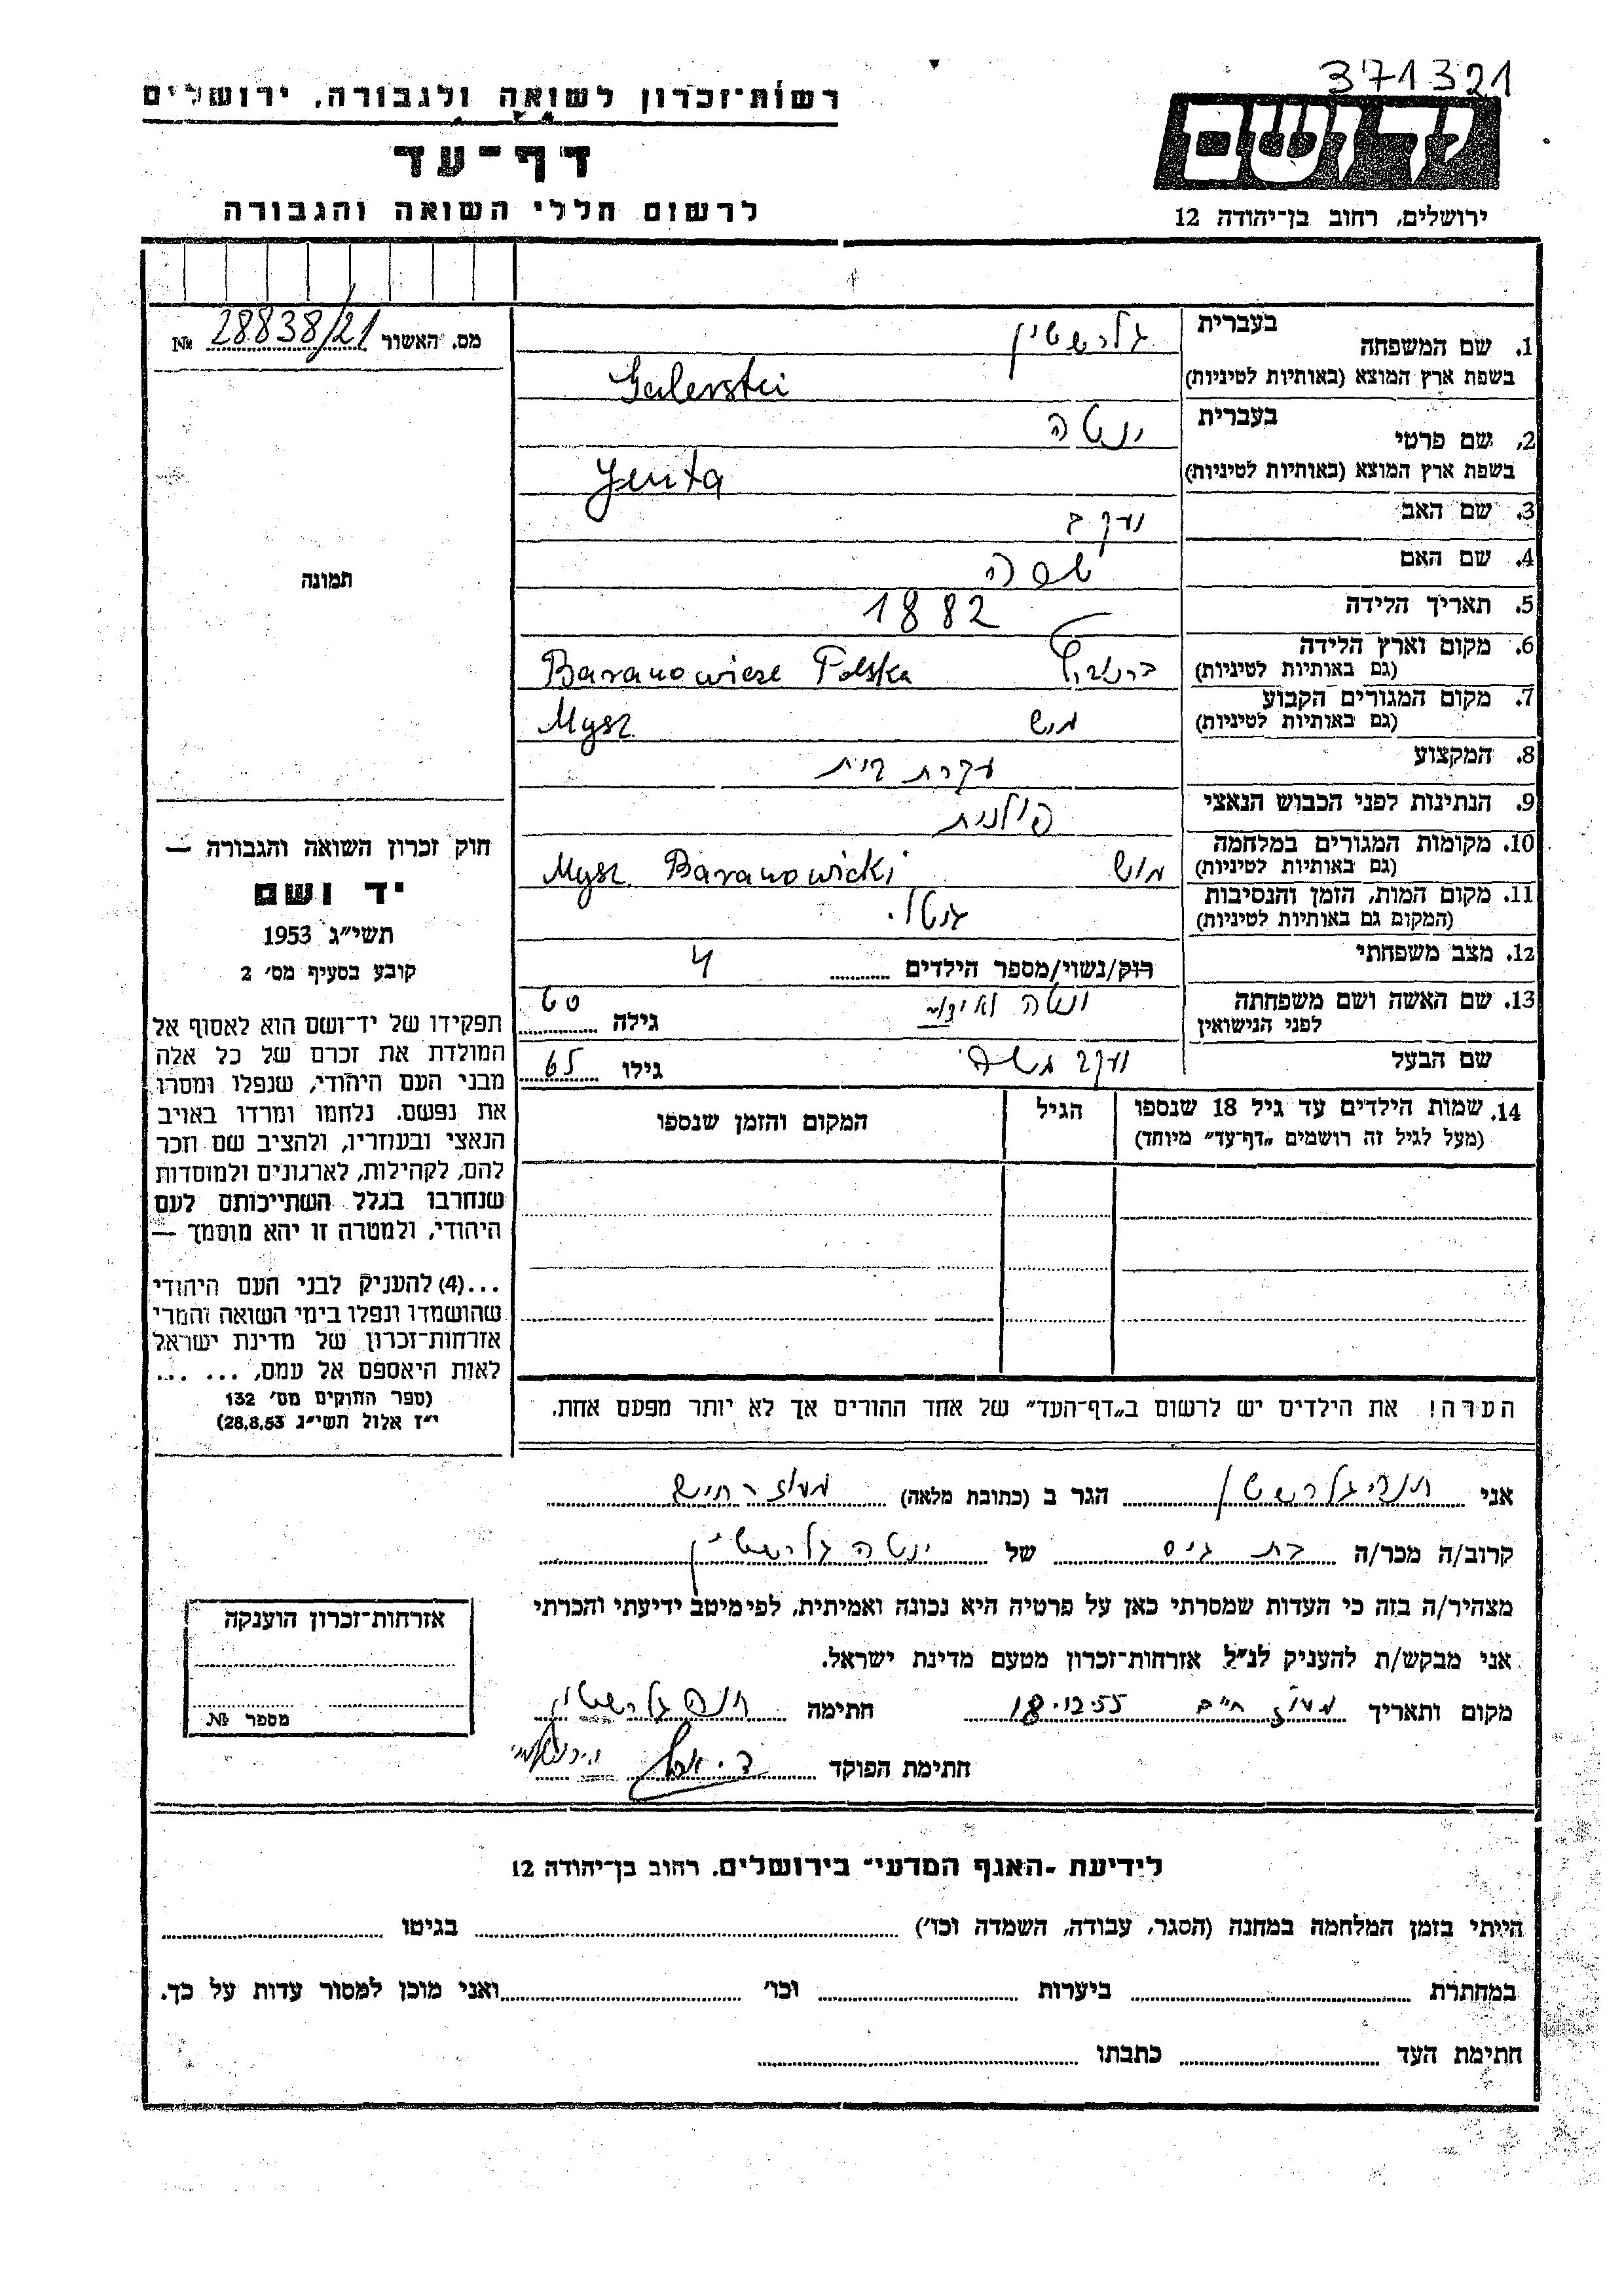 371321
רשות־זכרון לשואה ולגבורה, ירושלים
יד ושם
דף־עד
לרשום חללי השואה והגבורה
ירושלים, רחוב בן־יהודה 12
מס. האשור 28838/21 №
1. שם המשפחה
בעברית גלרשטיין
בשפת ארץ המוצא (באותיות לטיניות)
2. שם פרטי
בעברית ינטה
בשפת ארץ המוצא (באותיות לטיניות) Jenta
3. שם האב
4. שם האם
5. תאריך הלידה 1882
6. מקום וארץ הלידה
(גם באותיות לטיניות) Baranowicze Polska
7. מקום המגורים הקבוע מוש
(גם באותיות לטיניות) Mysz
8. המקצוע עקרת בית
9. הנתינות לפני הכבוש הנאצי פולנית
10. מקומות המגורים במלחמה מוש
(גם באותיות לטיניות) Mysz Baranowicki
11. מקום המות, הזמן והנסיבות
(המקום גם באותיות לטיניות)
12. מצב משפחתי רוק/נשוי/מספר הילדים 4
13. שם האשה ושם משפחתה ינטה גילה
לפני הנישואין
שם הבעל גילו 65
14. שמות הילדים עד גיל 18 שנספו הגיל המקום והזמן שנספו
(מעל לגיל זה רושמים „דף־עד" מיוחד)
הערה! את הילדים יש לרשום ב„דף־העד" של אחד ההורים אך לא יותר מפעם אחת.
תמונה
חוק זכרון השואה והגבורה —
יד ושם
תשי"ג 1953
קובע בסעיף מס' 2
תפקידו של יד־ושם הוא לאסוף אל
המולדת את זכרם של כל אלה
מבני העם היהודי, שנפלו ומסרו
את נפשם. נלחמו ומרדו באויב
הנאצי ובעוזריו, ולהציב שם וזכר
להם, לקהילות, לארגונים ולמוסדות
שנחרבו בגלל השתייכותם לעם
היהודי, ולמטרה זו יהא מוסמך —
...(4) להעניק לבני העם היהודי
שהושמדו ונפלו בימי השואה והמרי
אזרחות־זכרון של מדינת ישראל
לאות היאספם אל עמם, ... ...
(ספר החוקים מס' 132
י"ז אלול תשי"ג 28.8.53)
אני גלרשטיין הגר ב (כתובת מלאה) מעוז חיים
קרוב/ה מכר/ה בת גיס של ינטה גלרשטיין
מצהיר/ה בזה כי העדות שמסרתי כאן על פרטיה היא נכונה ואמיתית, לפי מיטב ידיעתי והכרתי
אני מבקש/ת להעניק לנ"ל אזרחות־זכרון מטעם מדינת ישראל.
מקום ותאריך מעוז חיים 18.12.55 חתימה גלרשטיין
חתימת הפוקד
אזרחות־זכרון הוענקה
מספר №
לידיעת -האגף המדעי״ בירושלים. רחוב בן־יהודה 12
הייתי בזמן המלחמה במחנה (הסגר, עבודה, השמדה וכו') בגיטו
במחתרת ביערות וכו' ואני מוכן למסור עדות על כך.
חתימת העד כתבתו